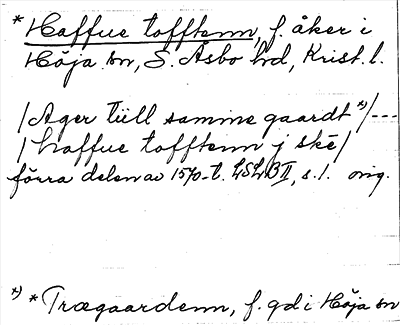 * Haffue tofftenn, f. åker i
Höja sn, S. Åsbo hd, Krist. l.
/Ager tiill samme gaardt *)/---
/haffue tofftenn j ske/
förra delen av 1570-t. LSLB II, s. 1. orig.
*) * Trægaardenn, f. gd i Höja sn